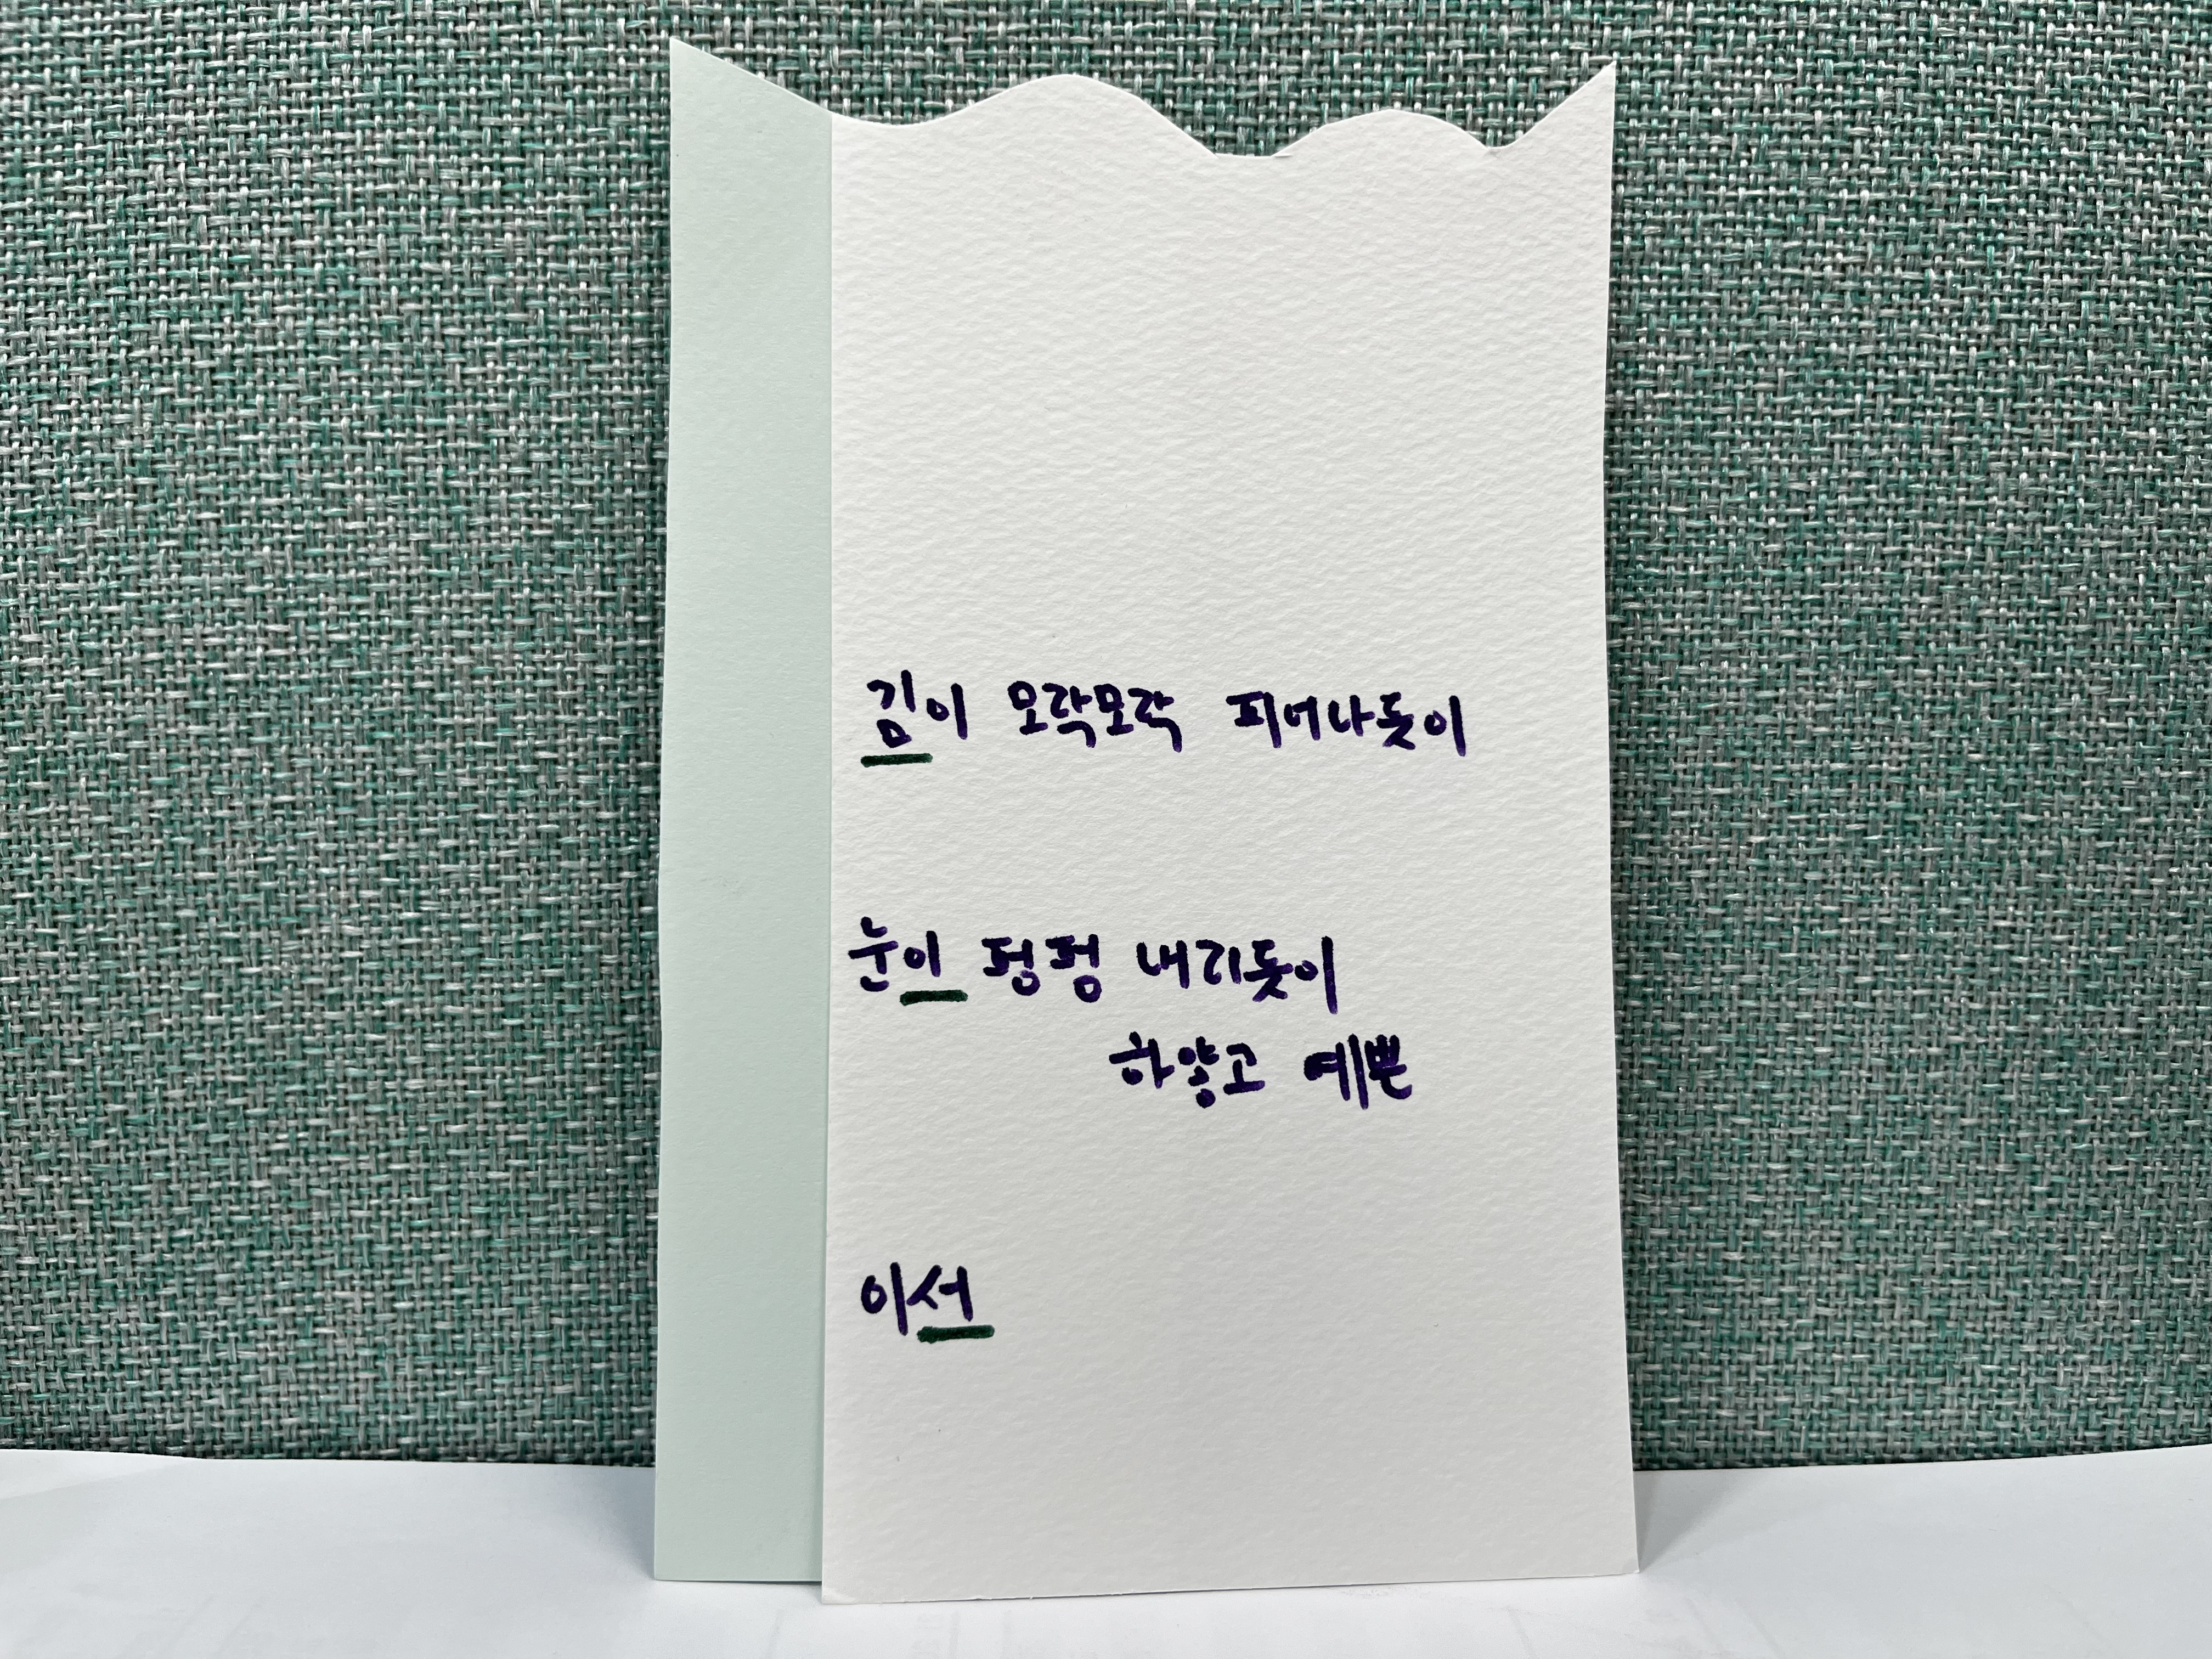 김이 모락모락 피어나듯이
눈이 펑펑 내리듯이
하얗고 예쁜
이서